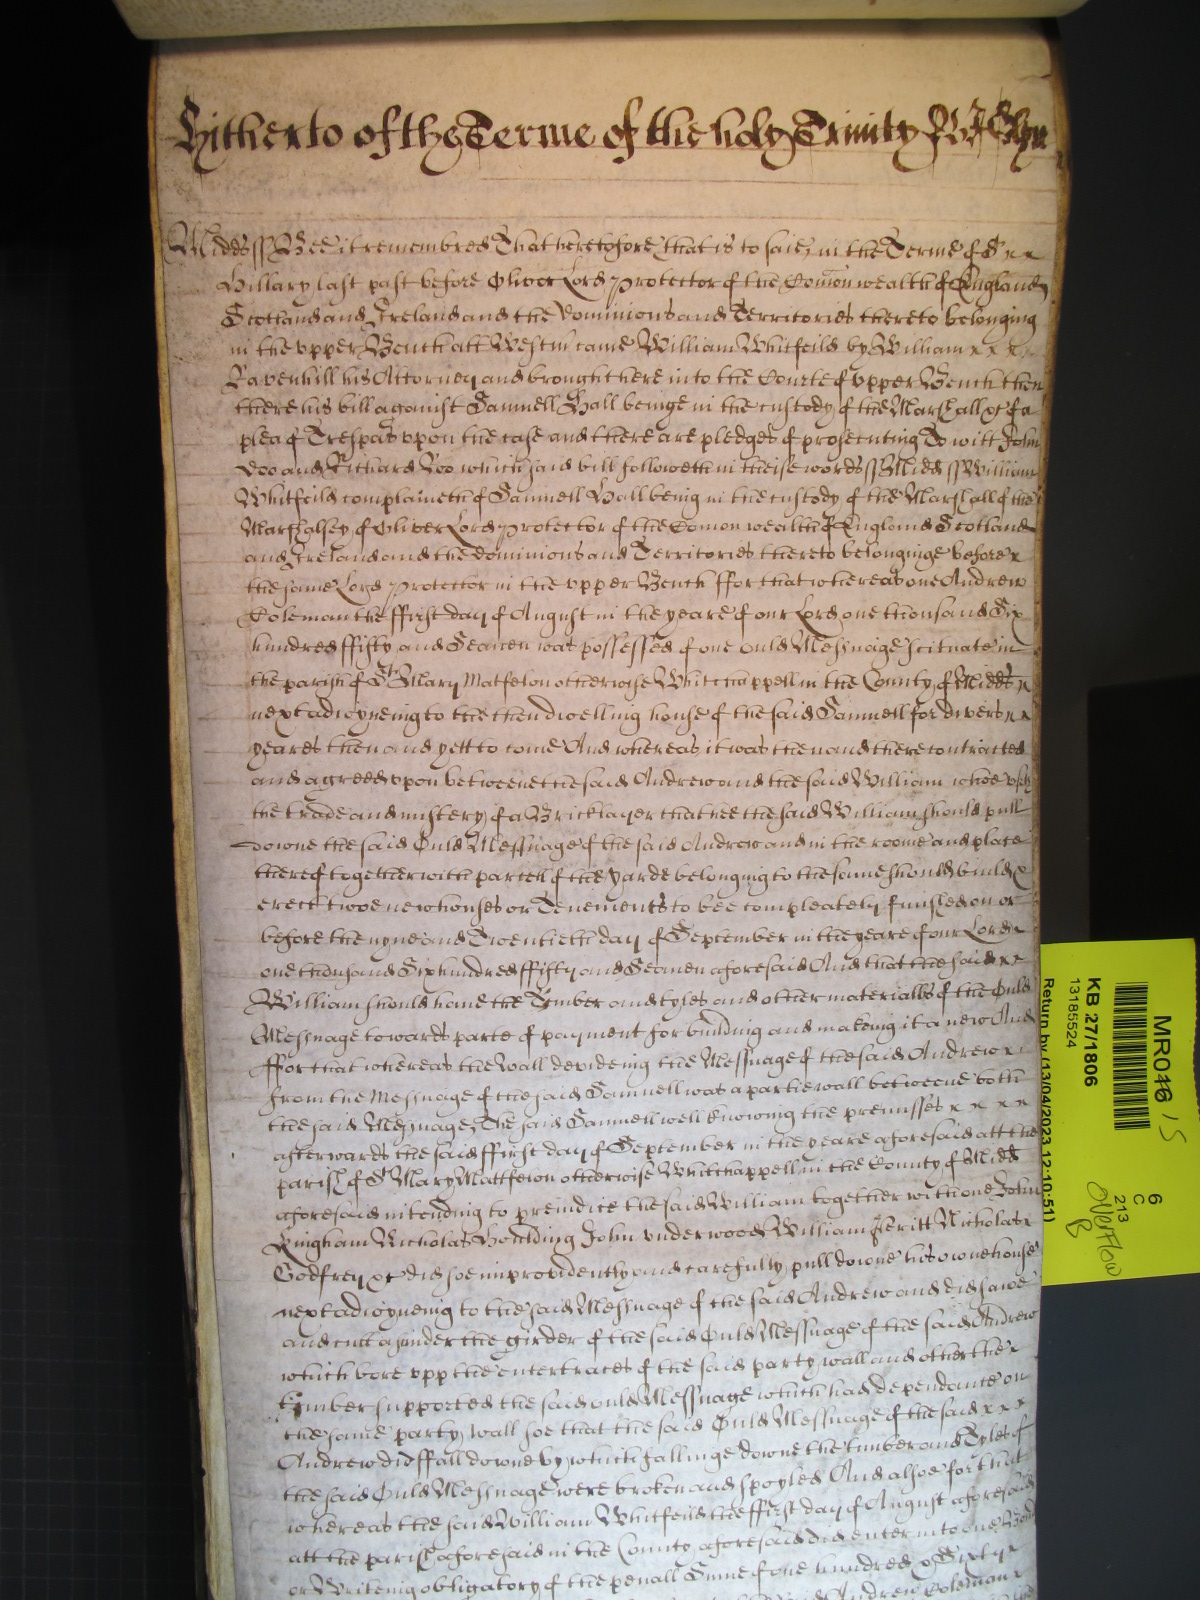 Hitherto of the Terme of the holy Trinity
Midds ss Bee it remembred That heretofore that is to saie in the Terme of St x x
Hillary last past before Oliver Lord Protector of the Comon wealth of England
Scotland and Ireland and the Dominions and Territories thereto belonging
in the vpper Bench att Westm came William Whitfeild by William x x x x
Ravenhill his Attorney and brought here into the Courte of vpper Bench then
there his bill against Samuell Hall beinge in the custody of the Marshall &c of a
plea of Trespas vpon the case and there are pledges of prosecuting To witt John
Doo and Richard Roo which said bill followeth in theise words ss Midd ss William
Whitfeild complaineth of Samuell Hall being in the custody of the Marshall of the
Marshalsey of Oliver Lord Protector of the Comon wealth of England Scotland
and Ireland and the dominions and Territories thereto belonginge before x
the same Lord Protector in the vpper Bench ffor that whereas one Andrew
Coleman the ffirst day of August in the yeare of our Lord one thousand Six
hundred ffifty and Seaven was possessed of one ould Messuage scituate in
the parish of St Mary Matfelon otherwise Whitechappell in the County of Midds x
next adioyneing to the then dwelling house of the said Samuell for divers x x
yeares then and yett to come And whereas it was then and there contracted
and agreed vpon betweene the said Andrew and the said William whoe vseth
the trade and mistery of a Bricklayer that hee the said William should pull
downe the said Ould Messuage of the said Andrew and in the roome and place
thereof together with parcell of the yarde belonging to the same should build &
erect twoe new houses or Tenements to bee compleately finished on or
before the nyne and Twentieth day of September in the yeare of our Lord x
one thousand Six hundred ffifty and Seaven aforesaid And that the said x x
William should haue the Timber and tyles and other materialls of the Ould
Messuage towards parte of payment for building and makeing it a new And
ffor that whereas the Wall devideing the Messuage of the said Andrew x
from the Messuage of the said Samuell was a partie wall betweene both
the said Messuages The said Samuell well knowing the premisses x x x x
afterwards the said ffirst day of September in the yeare aforesaid att the
parish of St Mary Mattfelon otherwise Whitchappell in the County of Midd
aforesaid intending to preiudice the said William together with one John
Kingham Nicholas Houlding John vnderwood William Meritt Nicholas x
Godfrey &c did soe improvidently and carefully pull downe his owne house
next adioyneing to the said Messuage of the said Andrew and did sawe
and cutt asunder the girder of the said Ould Messuage of the said Andrew
which bore vpp the entertaces of the said party wall and other the x
timber supported the said ould Messuage which had dependance on
the same party wall soe that the said Ould Messuage of the said x x x
Andrew did ffall downe by which fallinge downe the timber and Tyles of
the said Ould Messuage were broken and spoyled And alsoe for that
whereas the said William Whitfeild the ffirst day of August aforesaid
att the parish aforesaid in the County aforesaid did enter into one Bond
or Writeing obligatory of the penall Sume of one hundred & Sixty x
said Andrew Coleman x
MR016 / 5
KB 27/1806
13185524
Return by (13/04/2023 12:10:51)
6
C
213
overflow
8